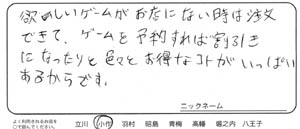 欲しいゲームがお店にない時は注文
できて、ゲームを予約すれば割引き
になったりと色々とお得なコトがいっぱい
あるからです。
ニックネーム
よく利用されるお店を
○で囲んでください。
立川 小作 羽村 昭島 青梅 高幡 堀之内 八王子